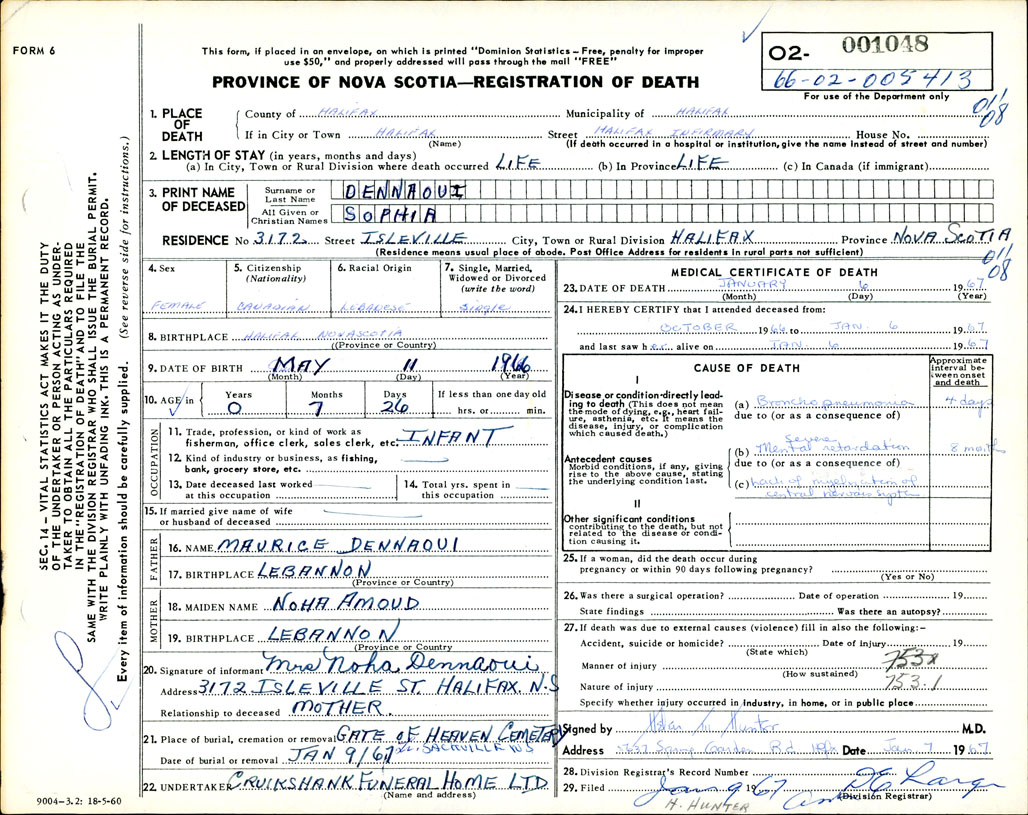 FORM 6
This form, if placed in an envelope, on which is printed "Dominion Statistics – Free, penalty for improper
use $50," and properly addressed will pass through the mail "FREE"
PROVINCE OF NOVA SCOTIA—REGISTRATION OF DEATH
O2- 001048
66-02-005413
For use of the Department only
01/08
1. PLACE OF DEATH
County of HALIFAX Municipality of HALIFAX
If in City or Town HALIFAX Street HALIFAX INFIRMARY House No.
(Name) (If death occurred in a hospital or institution, give the name instead of street and number)
2. LENGTH OF STAY (in years, months and days)
(a) In City, Town or Rural Division where death occurred LIFE (b) In Province LIFE (c) In Canada (if immigrant)
3. PRINT NAME OF DECEASED
Surname or Last Name DENNAOUI
All Given or Christian Names SOPHIA
RESIDENCE No 3172 Street ISLEVILLE City, Town or Rural Division HALIFAX Province NOVA SCOTIA
(Residence means usual place of abode. Post Office Address for residents in rural parts not sufficient)
01/08
4. Sex
FEMALE
5. Citizenship (Nationality)
CANADIAN
6. Racial Origin
LEBANESE
7. Single, Married, Widowed or Divorced (write the word)
Single
8. BIRTHPLACE HALIFAX NOVASCOTIA
((Province or Country)
9. DATE OF BIRTH MAY 11 1966
(Month) (Day) (Year)
10. AGE in Years Months Days If less than one day old
0 7 26 hrs. or min.
OCCUPATION
11. Trade, profession, or kind of work as
fisherman, office clerk, sales clerk, etc. INFANT
12. Kind of industry or business, as fishing,
bank, grocery store, etc.
13. Date deceased last worked
at this occupation
14. Total yrs. spent in
this occupation
15. If married give name of wife
or husband of deceased
FATHER
16. NAME MAURICE DENNAOUI
17. BIRTHPLACE LEBANNON
(Province or Country)
MOTHER
18. MAIDEN NAME NOHA AMOUD
19. BIRTHPLACE LEBANNON
(Province or Country
20. Signature of informant Mrs Noha Dennaoui
Address 3172 ISLEVILLE ST. HALIFAX. N.S
Relationship to deceased MOTHER
21. Place of burial, cremation or removal GATE OF HEAVEN CEMETERY
SACKVILLE NS
Date of burial or removal JAN 9/67
22. UNDERTAKER CRUIKSHANK FUNERAL HOME LTD
(Name and address)
9004–3.2: 18-5-60
MEDICAL CERTIFICATE OF DEATH
23. DATE OF DEATH JANUARY 6 1967
(Month) (Day) (Year)
24. I HEREBY CERTIFY that I attended deceased from:
OCTOBER 1966 to JAN. 6 1967
and last saw her alive on JAN 6 1967
CAUSE OF DEATH
Approximate interval between onset and death
I
Disease or condition directly leading to death (This does not mean the mode of dying, e.g., heart failure, asthenia, etc. It means the disease, injury, or complication which caused death.)
(a) Bronchopneumonia 4 days
due to (or as a consequence of)
Antecedent causes
Morbid conditions, if any, giving rise to the above cause, stating the underlying condition last.
severe
(b) Mental retardation 8 month
due to (or as a consequence of)
(c) Lack of myelination of
central nervous system
II
Other significant conditions
contributing to the death, but not related to the disease or condition causing it.
25. If a woman, did the death occur during
pregnancy or within 90 days following pregnancy?
(Yes or No)
26. Was there a surgical operation? Date of operation 19
State findings Was there an autopsy?
27. If death was due to external causes (violence) fill in also the following:–
Accident, suicide or homicide? Date of injury 19
(State which)
753x
Manner of injury
(How sustained)
753.1
Nature of injury
Specify whether injury occurred in industry, in home, or in public place
Signed by Hunter M.D.
Address Spring Garden Rd. Hfx Date Jan 7 1967
28. Division Registrar's Record Number
29. Filed Jan 9 1967
(Division Registrar)
H. HUNTER
SEC. 14 – VITAL STATISTICS ACT MAKES IT THE DUTY
OF THE UNDERTAKER OR PERSON ACTING AS UNDER-
TAKER TO OBTAIN ALL THE PARTICULARS REQUIRED
IN THE "REGISTRATION OF DEATH" AND TO FILE THE
SAME WITH THE DIVISION REGISTRAR WHO SHALL ISSUE THE BURIAL PERMIT.
WRITE PLAINLY WITH UNFADING INK. THIS IS A PERMANENT RECORD.
Every item of information should be carefully supplied. (See reverse side for instructions.)